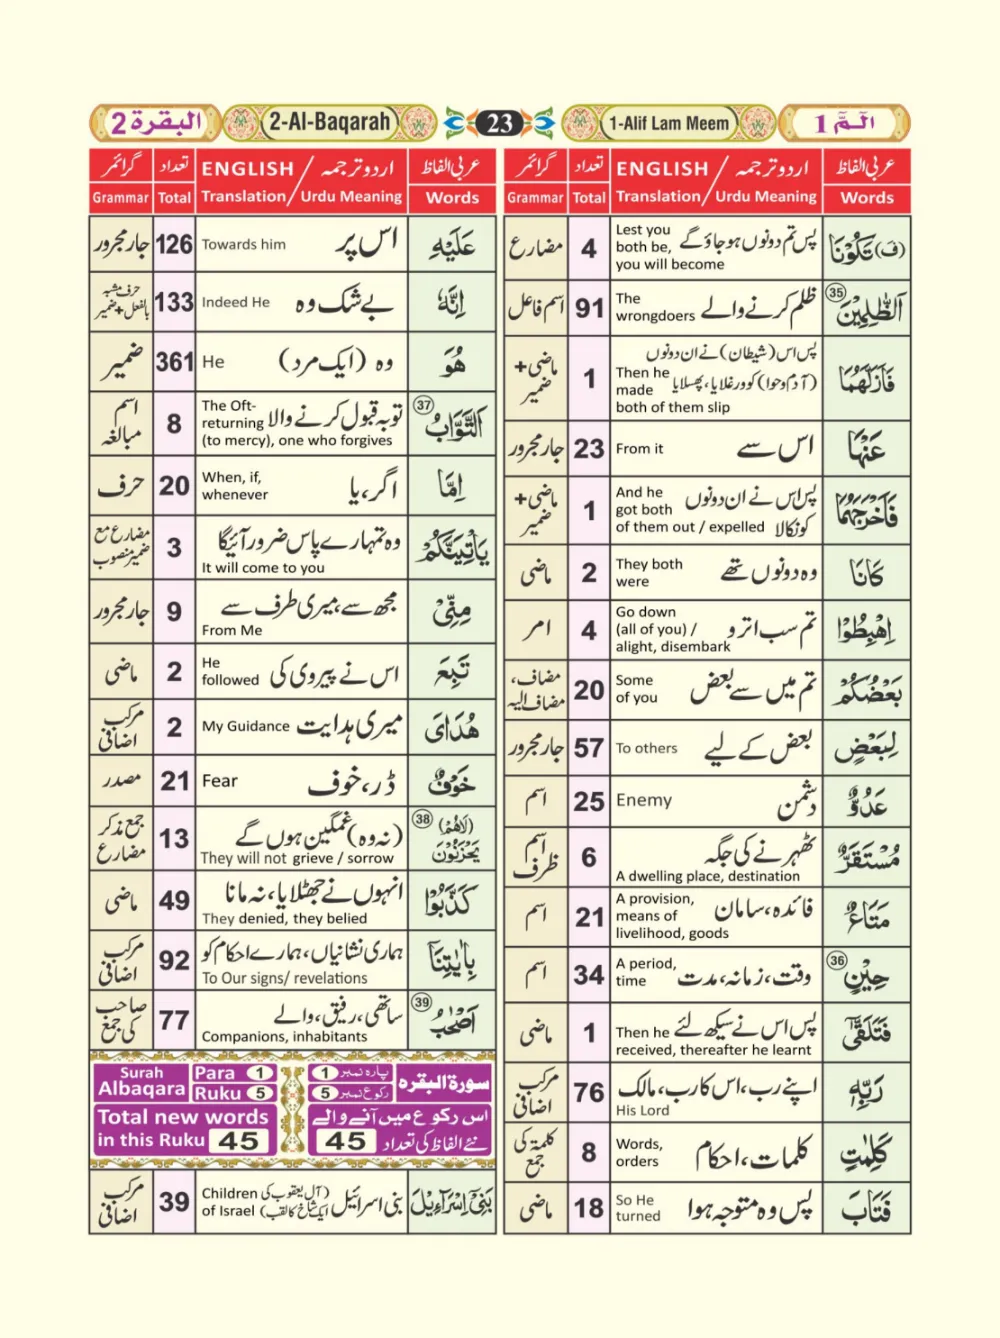 البقرة 2
2-Al-Baqarah
23
1-Alif Lam Meem
الٓمّٓ 1
عربی الفاظ اردو ترجمہ / ENGLISH تعداد گرائمر
Words Urdu Meaning / Translation Total Grammar
(فَ) تَكُوْنَا پس تم دونوں ہو جاؤ گے Lest you both be, you will become 4 مضارع
الظّٰلِمِيْنَ ㉟ ظلم کرنے والے The wrongdoers 91 اسم فاعل
فَاَزَلَّهُمَا پس اس (شیطان) نے ان دونوں (آدم و حوا) کو ورغلایا، پھسلایا Then he made both of them slip 1 ماضی + ضمیر
عَنْهَا اس سے From it 23 جار مجرور
فَاَخْرَجَهُمَا پس اس نے ان دونوں کو نکالا And he got both of them out / expelled 1 ماضی + ضمیر
كَانَا وہ دونوں تھے They both were 2 ماضی
اهْبِطُوْا تم سب اترو Go down (all of you) / alight, disembark 4 امر
بَعْضُكُمْ تم میں سے بعض Some of you 20 مضاف، مضاف الیہ
لِبَعْضٍ بعض کے لیے To others 57 جار مجرور
عَدُوٌّ دشمن Enemy 25 اسم
مُسْتَقَرٌّ ٹھہرنے کی جگہ A dwelling place, destination 6 اسم ظرف
مَتَاعٌ فائدہ، سامان A provision, means of livelihood, goods 21 اسم
حِيْنٍ ㊱ وقت، زمانہ، مدت A period, time 34 اسم
فَتَلَقّٰٓى پس اس نے سیکھ لئے Then he received, thereafter he learnt 1 ماضی
رَبِّهٖ اپنے رب، اس کا رب، مالک His Lord 76 مرکب اضافی
كَلِمٰتٍ کلمات، احکام Words, orders 8 کلمۃ کی جمع
فَتَابَ پس وہ متوجہ ہوا So He turned 18 ماضی
عربی الفاظ اردو ترجمہ / ENGLISH تعداد گرائمر
Words Urdu Meaning / Translation Total Grammar
عَلَيْهِ اس پر Towards him 126 جار مجرور
اِنَّهٗ بے شک وہ Indeed He 133 حرف مشبہ بالفعل + ضمیر
هُوَ وہ (ایک مرد) He 361 ضمیر
التَّوَّابُ ㊲ توبہ قبول کرنے والا The Oft-returning (to mercy), one who forgives 8 اسم مبالغہ
اِمَّا اگر، یا When, if, whenever 20 حرف
يَاْتِيَنَّكُمْ وہ تمہارے پاس ضرور آئیگا It will come to you 3 مضارع مع ضمیر منصوب
مِنِّيْ مجھ سے، میری طرف سے From Me 9 جار مجرور
تَبِعَ اس نے پیروی کی He followed 2 ماضی
هُدَايَ میری ہدایت My Guidance 2 مرکب اضافی
خَوْفٌ ڈر، خوف Fear 21 مصدر
(لَاهُمْ) يَحْزَنُوْنَ ㊳ (نہ وہ) غمگین ہوں گے They will not grieve / sorrow 13 جمع مذکر مضارع
كَذَّبُوْا انہوں نے جھٹلایا، نہ مانا They denied, they belied 49 ماضی
بِاٰيٰتِنَا ہماری نشانیاں، ہمارے احکام کو To Our signs/ revelations 92 مرکب اضافی
اَصْحٰبُ ㊴ ساتھی، رفیق، والے Companions, inhabitants 77 صاحب کی جمع
Surah Albaqara Para 1 Ruku 5
سورة البقره پارہ نمبر 1 رکوع نمبر 5
Total new words in this Ruku 45
اس رکوع میں آنے والے نئے الفاظ کی تعداد 45
بَنِيْٓ اِسْرَآءِيْلَ بنی اسرائیل (آل یعقوب کی ایک شاخ کا لقب) Children of Israel 39 مرکب اضافی